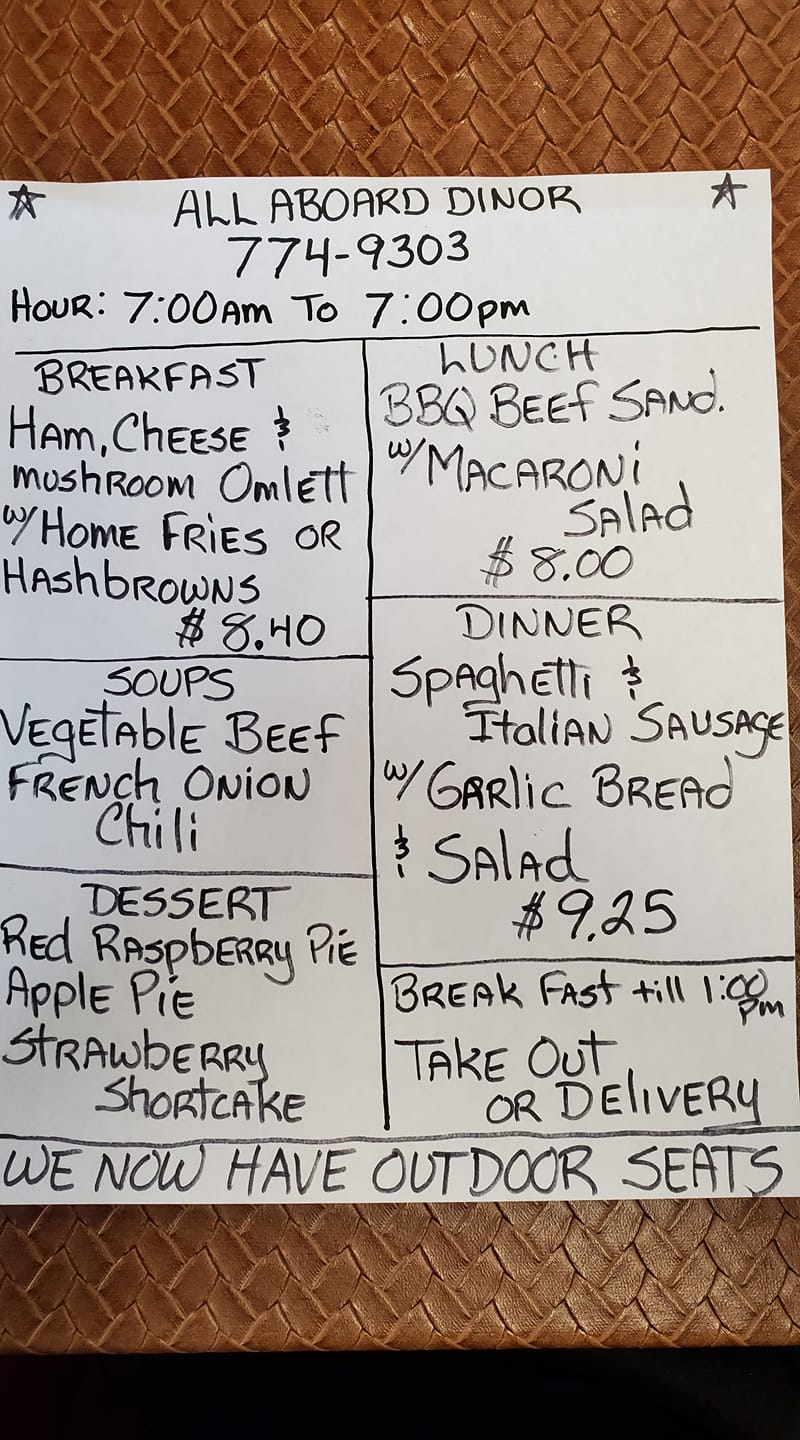 ALL ABOARD DINOR
774-9303
HOUR: 7:00AM TO 7:00pm
BREAKFAST
HAM, CHEESE &
mushROOM OmlEtt
w/HOME FRiES OR
HAshbROWNS
$ 8.40
SOUPS
VEgETAblE BEEF
FRENCh ONiON
Chili
DESSERT
REd RASpbERRy PiE
ApplE PiE
StRAWbERRy
ShORtCAKE
LUNCH
BBQ BEEf SANd.
w/MACARONi
SAlAd
$ 8.00
DINNER
SpAghETTi &
ItAliAN SAUSAGE
w/ GARlic BREAd
& SAlAd
$9.25
BREAK FASt till 1:00
pm
TAKE OUT
OR DEliVERy
WE NOW HAVE OUTDOOR SEATS